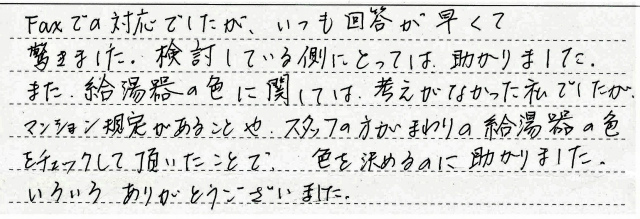 Faxでの対応でしたが、いつも回答が早くて
驚きました。検討している側にとっては、助かりました。
また、給湯器の色に関しては、考えがなかった私でしたが、
マンション規定があることや、スタッフの方がまわりの給湯器の色
をチェックして頂いたことで、色を決めるのに助かりました。
いろいろ ありがとうございました。